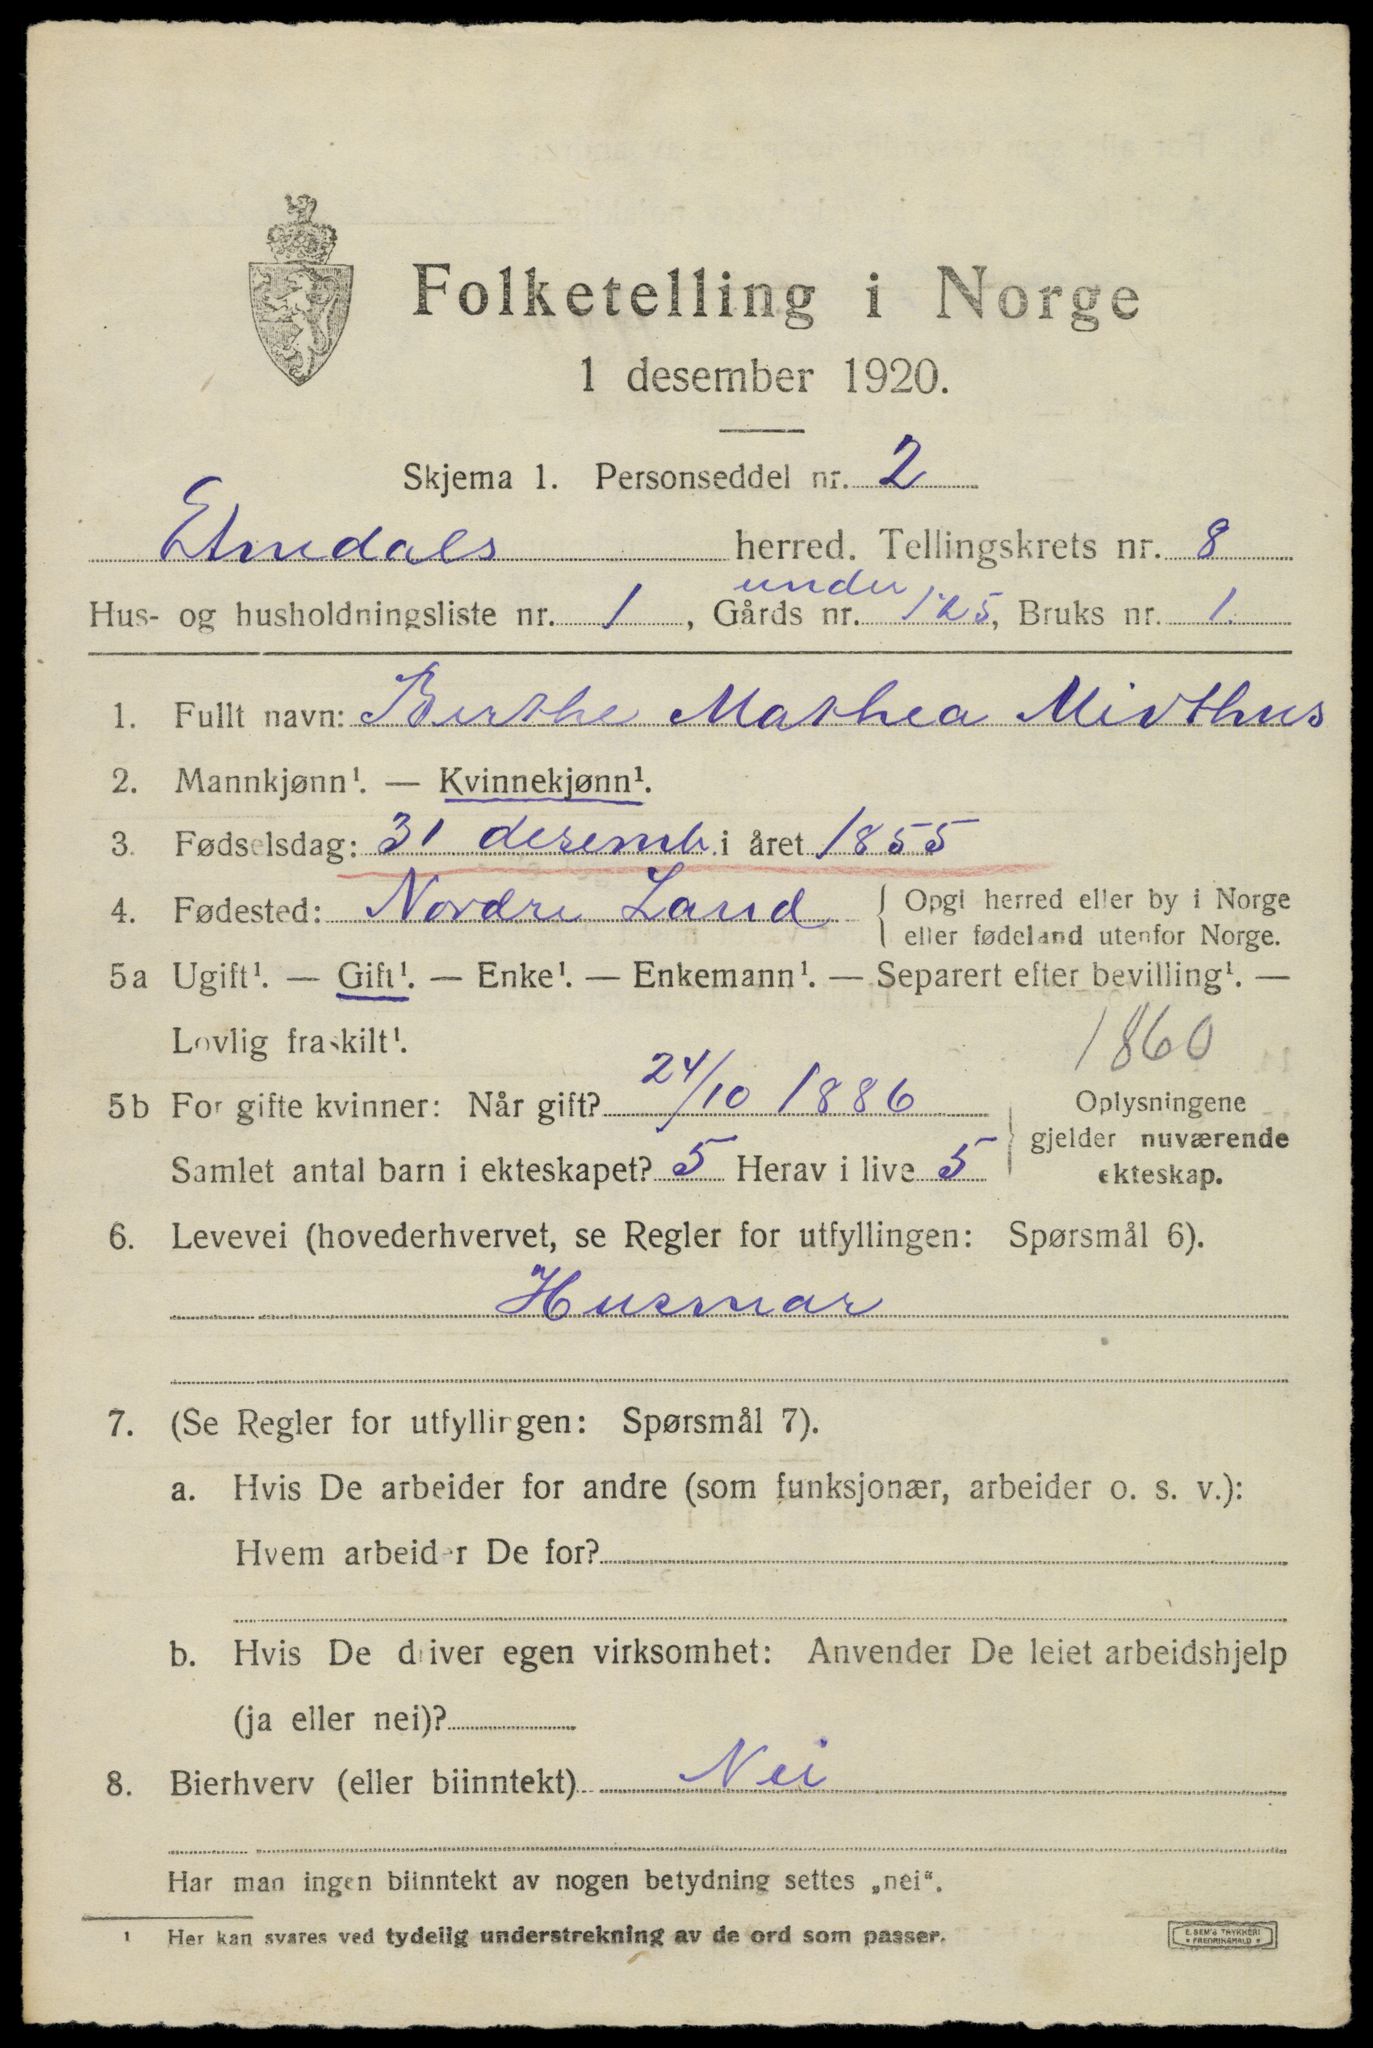 Folketelling i Norge
1 desember 1920.
Skjema 1. Personseddel nr. 2
Etnedals herred. Tellingskrets nr. 8
under
Hus- og husholdningsliste nr. 1, Gårds nr. 125, Bruks nr. 1.
1. Fullt navn: Berthe Mathea Midthus
2. Mannkjønn¹. — Kvinnekjønn¹.
3. Fødselsdag: 31 desemb. i året 1855
4. Fødested: Nordre Land { Opgi herred eller by i Norge
eller fødeland utenfor Norge.
5a Ugift¹. — Gift¹. — Enke¹. — Enkemann¹. — Separert efter bevilling¹. —
Lovlig fraskilt¹. 1860
5b For gifte kvinner: Når gift? 24/10 1886
Samlet antal barn i ekteskapet? 5 Herav i live 5
} Oplysningene
gjelder nuværende
ekteskap.
6. Levevei (hovederhvervet, se Regler for utfyllingen: Spørsmål 6).
Husmor
7. (Se Regler for utfyllingen: Spørsmål 7).
a. Hvis De arbeider for andre (som funksjonær, arbeider o. s. v.):
Hvem arbeider De for?
b. Hvis De driver egen virksomhet: Anvender De leiet arbeidshjelp
(ja eller nei)?
8. Bierhverv (eller biinntekt) Nei
Har man ingen biinntekt av nogen betydning settes „nei“.
¹ Her kan svares ved tydelig understrekning av de ord som passer.
E. SEM'S TRYKKERI
FREDRIKSHALD